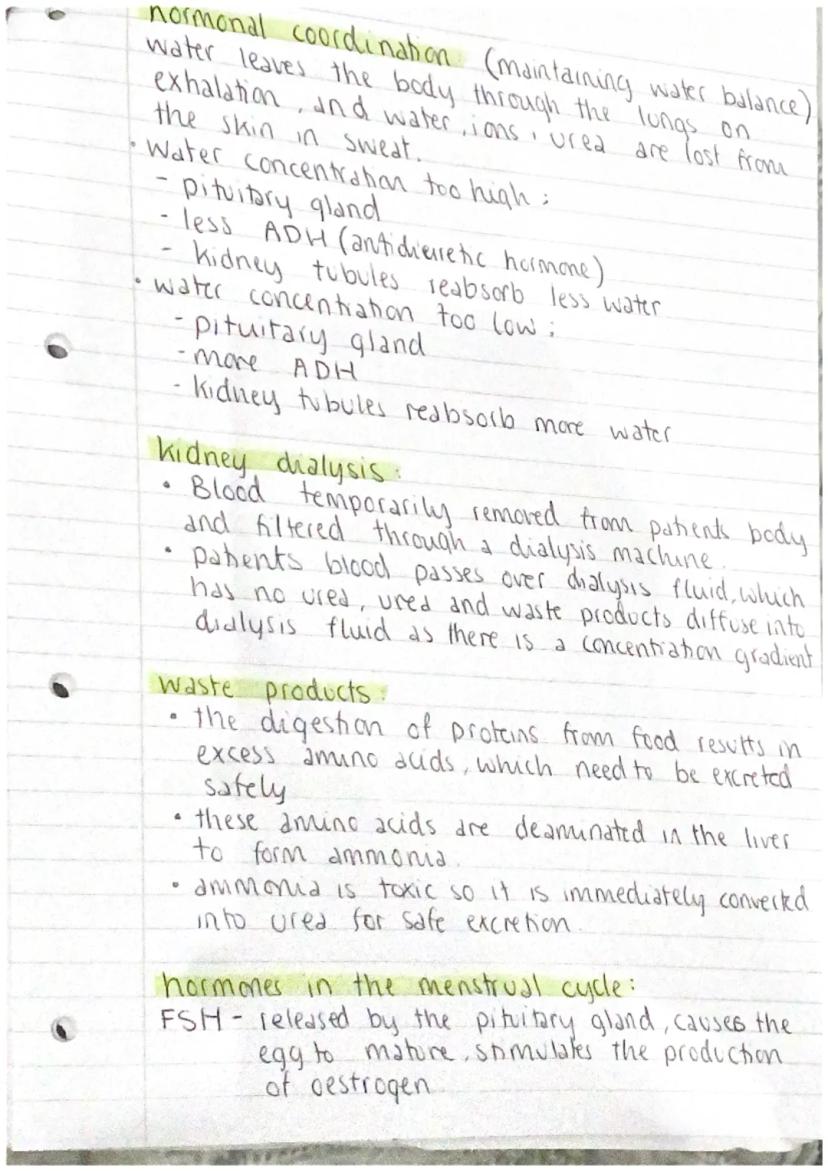 hormonal coordination (maintaining water balance)
water leaves the body through the lungs on
exhalation, and water, ions, urea are lost from
the skin in sweat.
• Water concentration too high:
- pituitary gland
- less ADH (antidieuretic hormone)
- kidney tubules reabsorb less water
• water concentration too low:
- pituitary gland
- more ADH
- kidney tubules reabsorb more water
kidney dialysis:
• Blood temporarily removed from patients body
and filtered through a dialysis machine.
• patients blood passes over dialysis fluid, which
has no urea, urea and waste products diffuse into
dialysis fluid as there is a concentration gradient
waste products:
• the digestion of proteins from food results in
excess amino acids, which need to be excreted
safely
• these amino acids are deaminated in the liver
to form ammonia.
• ammonia is toxic so it is immediately converted
into urea for safe excretion.
hormones in the menstrual cycle:
FSH - released by the pituitary gland, causes the
egg to mature, stimulates the production
of oestrogen